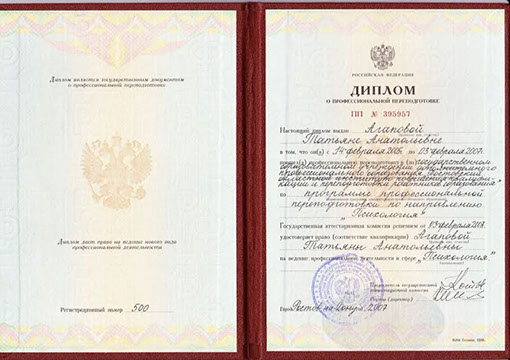 Диплом является государственным документом
о профессиональной переподготовке
Диплом дает право на ведение нового вида
профессиональной деятельности
Регистрационный номер 500
РОССИЙСКАЯ ФЕДЕРАЦИЯ
ДИПЛОМ
О ПРОФЕССИОНАЛЬНОЙ ПЕРЕПОДГОТОВКЕ
ПП № 395957
Настоящий диплом выдан Агаповой
Татьяне Анатольевне
в том, что он(а) с 14 февраля 2006 по 03 февраля 2007
прошел(а) профессиональную переподготовку в (на) Государственном
образовательном учреждении дополнительного
профессионального образования Ростовский
областной институт повышения квалифи-
кации и переподготовки работников образования
по программе профессиональной
переподготовки по направлению
"Психология"
Государственная аттестационная комиссия решением от 03 февраля
удостоверяет право (соответствие квалификации) Агаповой
Татьяны Анатольевны
на ведение профессиональной деятельности в сфере "Психология"
Председатель государственной
аттестационной комиссии
Ректор (директор)
Город Ростов-на-Дону, 2007